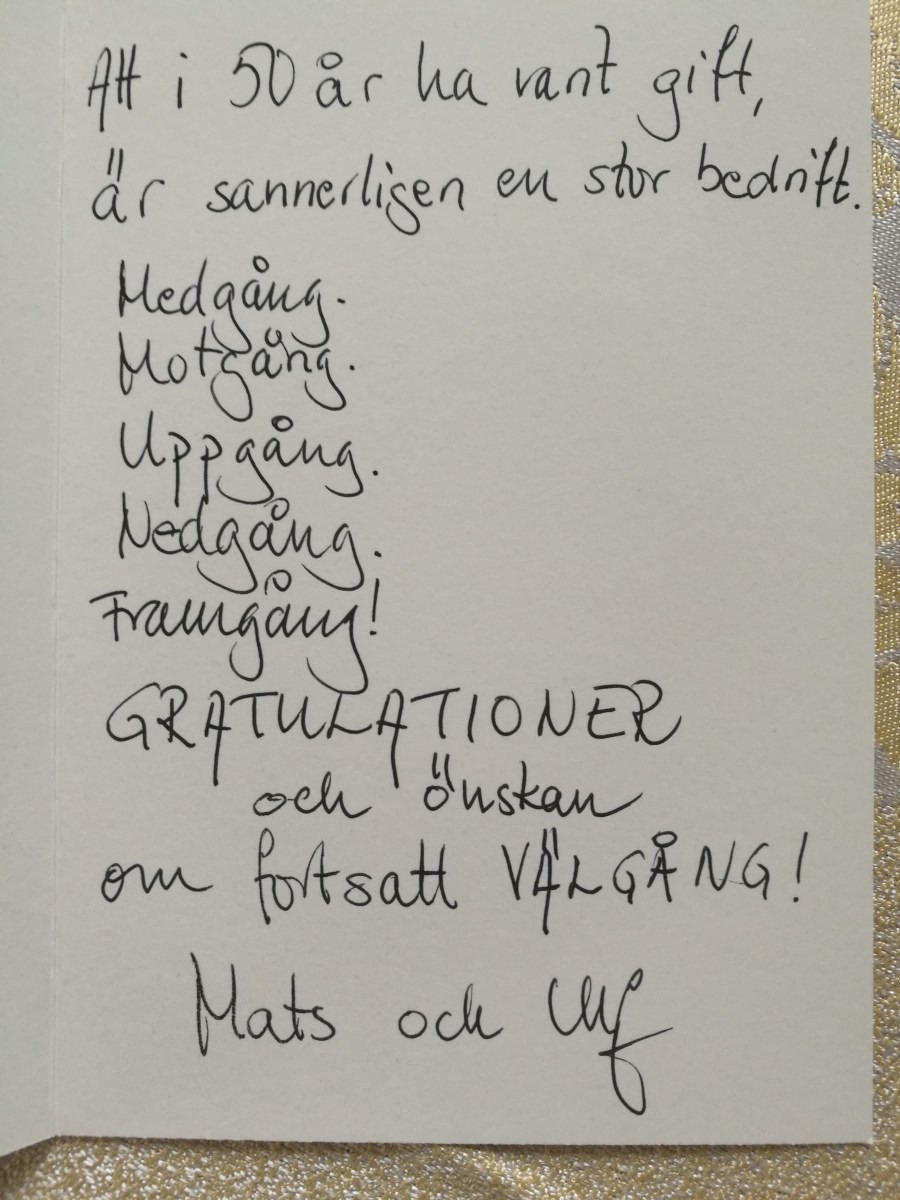 Att i 50 år ha vant gift,
är sannerligen en stor bedrift.
Medgång.
Motgång.
Uppgång.
Nedgång.
Framgång!
GRATULATIONER
och önskan
om fortsatt VÄLGÅNG!
Mats och Ulf